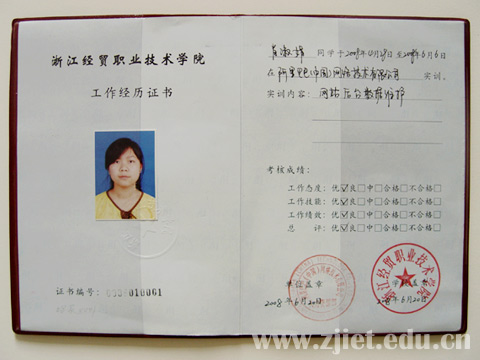 浙江经贸职业技术学院
工作经历证书
证书编号:
同学于2008年 月 日至2008年6月6日
在阿里巴巴(中国)网络技术有限公司 实训。
实训内容: 网站后台数据维护
考核成绩:
工作态度: 优☑良☐中☐合格☐不合格☐
工作技能: 优☑良☐中☐合格☐不合格☐
工作绩效: 优☑良☐中☐合格☐不合格☐
总 评: 优☑良☐中☐合格☐不合格☐
浙江经贸职业技术学院
单位盖章
2008年6月20日
学院盖章
6月20日
www.zjiet.edu.cn